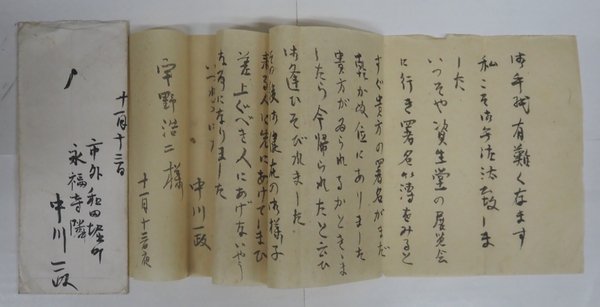 御手紙有難く存ます
私こそ御无沙汰致しま
した
いつぞや資生堂の展覧会
に行き署名の簿をみると
すぐ貴方の署名がまだ
乾かぬ位にありました
貴方がゐられるかとききま
したら今帰られたと云ひ
お逢ひそびれました
健在の御様子
る人に先にあげてしまひ
差上ぐべき人にあげないやう
になりました
中川一政
十一月十三日夜
宇野浩二様
十一月十三日
市外和田堀町
永福寺隣
中川一政